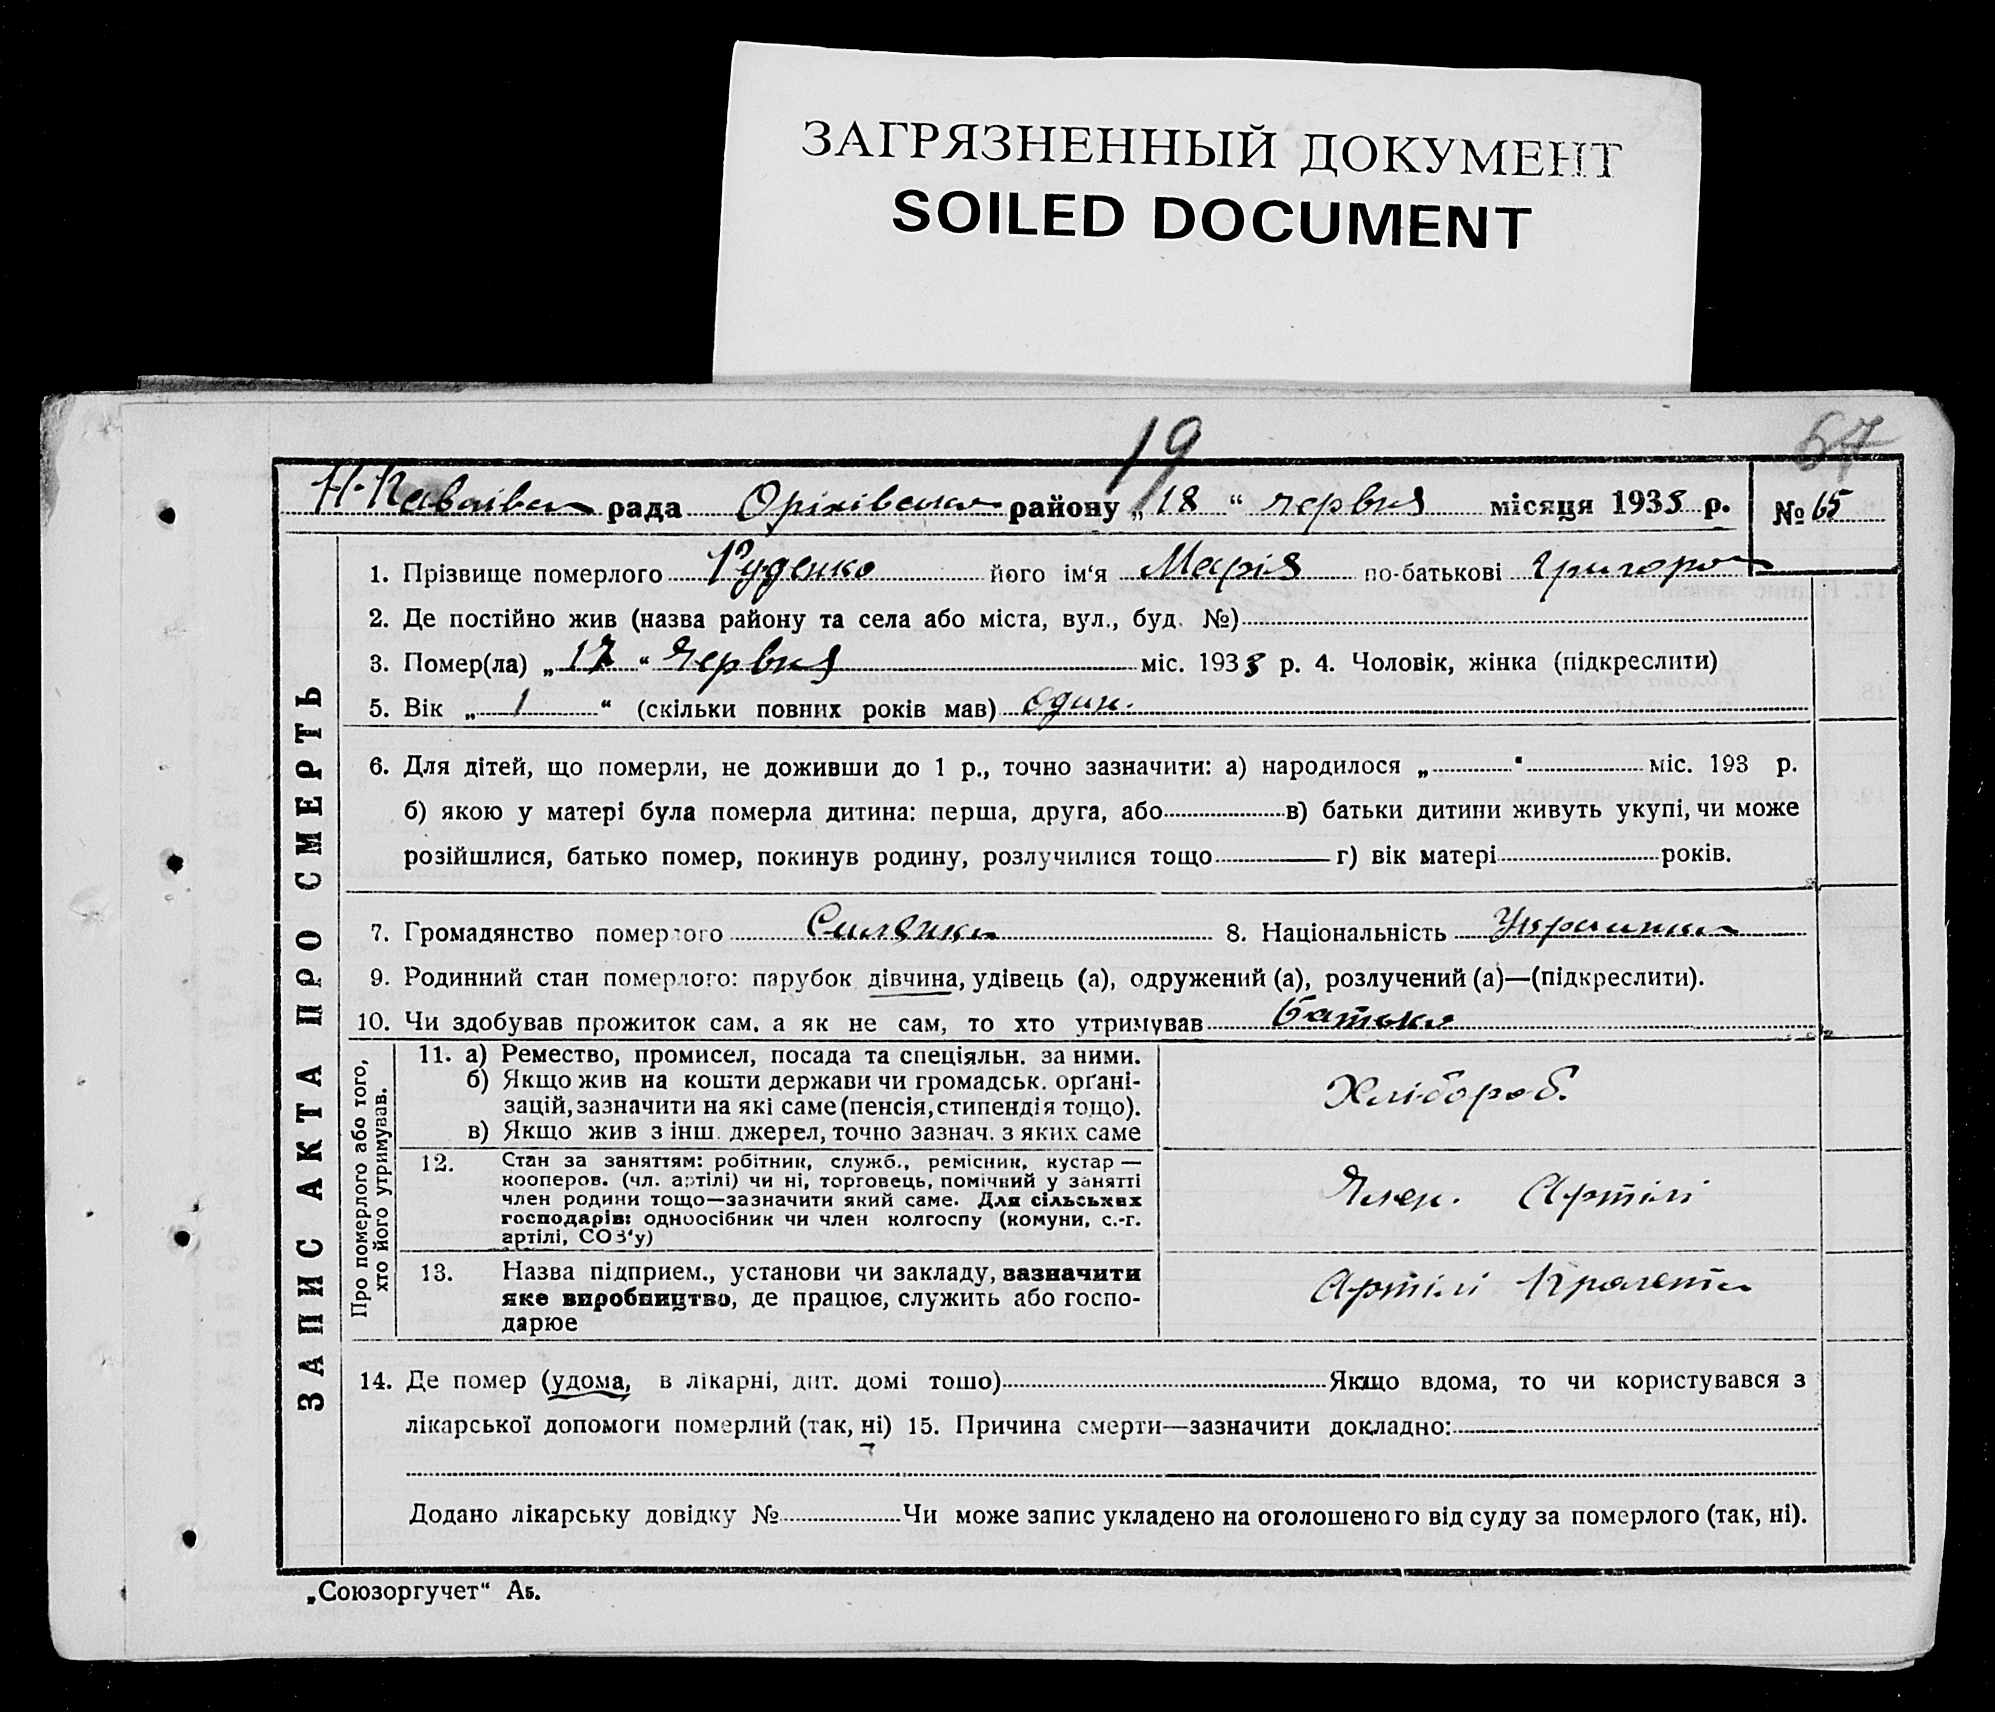 ЗАГРЯЗНЕННЫЙ ДОКУМЕНТ
SOILED DOCUMENT
19
67
Н-Павлівка рада Оріхівсько району „18“ червня місяця 1933 р. № 65
ЗАПИС АКТА ПРО СМЕРТЬ
1. Прізвище померлого Руденко його ім‘я Марія по-батькові Григоро
2. Де постійно жив (назва району та села або міста, вул., буд. №)
3. Помер(ла) „17“ червня міс. 1933 р. 4. Чоловік, жінка (підкреслити)
5. Вік „1“ (скільки повних років мав) один.
6. Для дітей, що померли, не доживши до 1 р., точно зазначити: а) народилося „ “ міс. 193 р.
б) якою у матері була померла дитина: перша, друга, або в) батьки дитини живуть укупі, чи може
розійшлися, батько помер, покинув родину, розлучилися тощо г) вік матері років.
7. Громадянство померлого 8. Національність Українка
9. Родинний стан померлого: парубок дівчина, удівець (а), одружений (а), розлучений (а)—(підкреслити).
10. Чи здобував прожиток сам, а як не сам, то хто утримував батько
Про померлого або того,
хто його утримував.
11. а) Ремество, промисел, посада та спеціяльн. за ними.
б) Якщо жив на кошти держави чи громадськ. орґані-
зацій, зазначити на які саме (пенсія, стипендія тощо).
в) Якщо жив з інш. джерел, точно зазнач. з яких саме
Хлібороб.
12. Стан за заняттям: робітник, служб., ремісник, кустар —
кооперов. (чл. артілі) чи ні, торговець, помічний у занятті
член родини тощо—зазначити який саме. Для сільських
господарів: одноосібник чи член колгоспу (комуни, с.-г.
артілі, СОЗ‘у)
Член. Артілі
13. Назва підприєм., установи чи закладу, зазначити
яке виробництво, де працює, служить або госпо-
дарює
Артілі
14. Де помер (удома, в лікарні, дит. домі тощо) Якщо вдома, то чи користувався з
лікарської допомоги померлий (так, ні) 15. Причина смерти—зазначити докладно:
Додано лікарську довідку № Чи може запис укладено на оголошеного від суду за померлого (так, ні).
„Союзоргучет“ Аб.